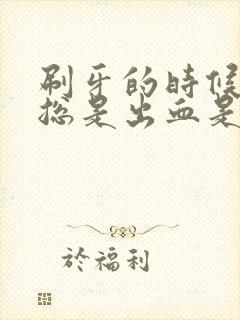 刷牙的时候
总是出血是
於福利